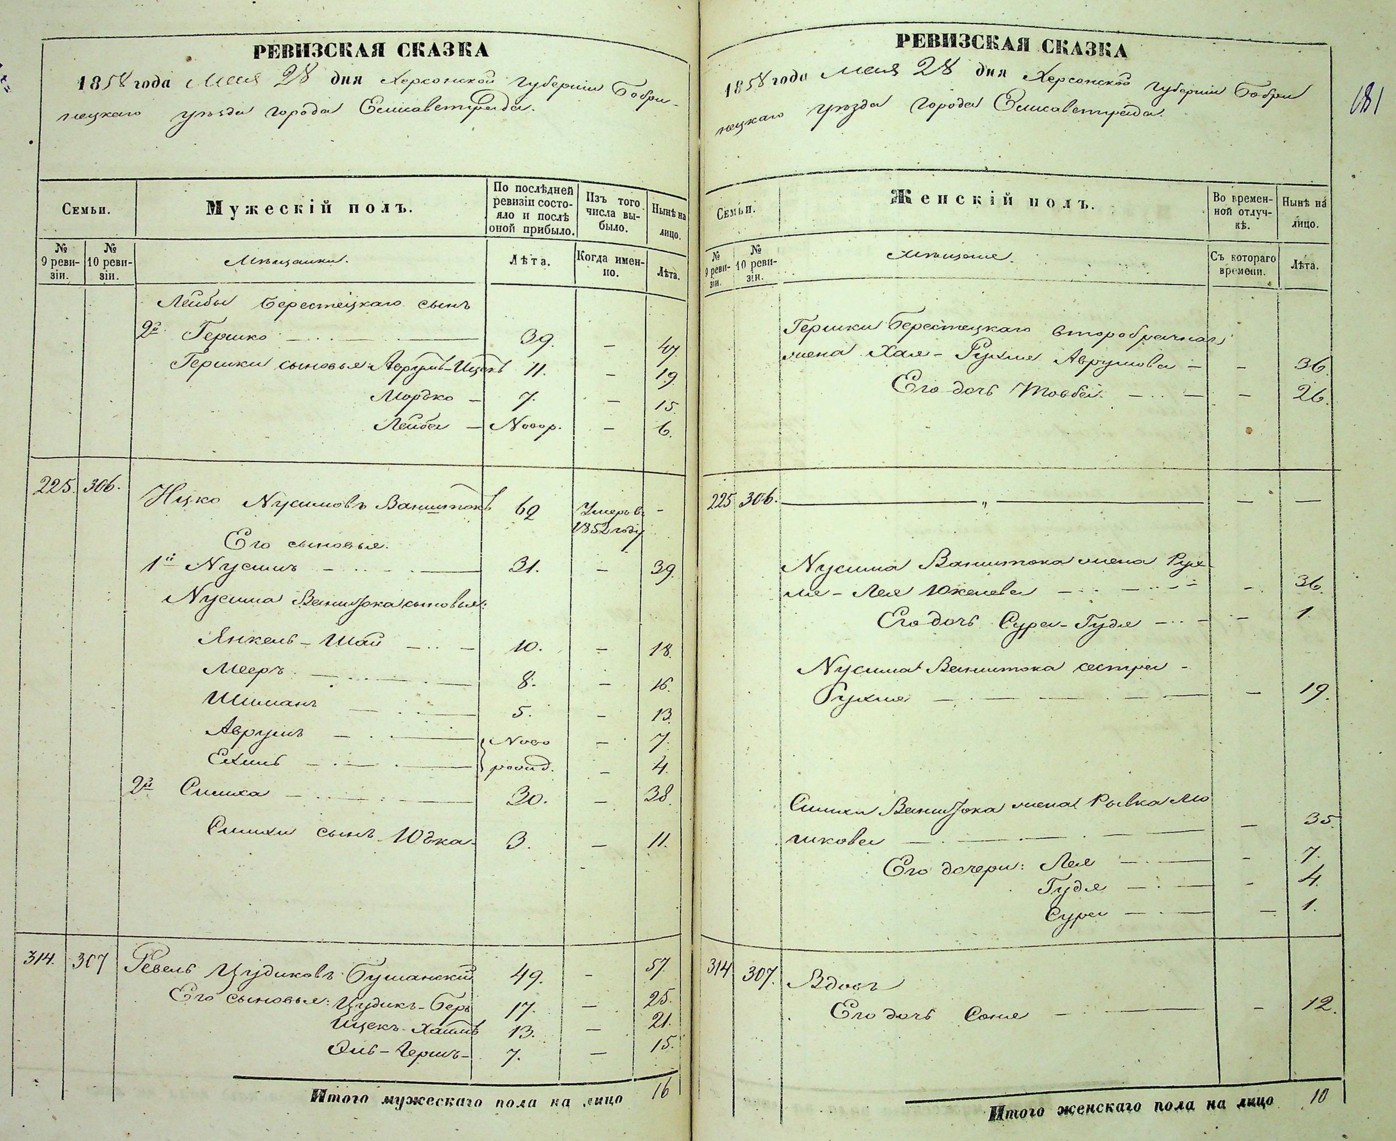 РЕВИЗСКАЯ СКАЗКА
1858 года Мая 28 дня Херсонской Губернии Бобри-
нецкаго уѣзда города Елисаветграда.
Семьи.
Мужескій полъ.
По послѣдней ревизіи состояло и послѣ оной прибыло.
Изъ того числа выбыло.
Нынѣ на лицо.
№ 9 ревизіи.
№ 10 ревизіи.
Мѣщане.
Лѣта.
Когда именно.
Лѣта.
Лейбы Берестецкаго сынъ
2й Гершко 39. – 47
Гершки сыновья: Аврумъ-Ицекъ 11. – 19
Мордко – 7. – 15.
Лейба – Новор. – 6.
225. 306. Ицко Нусимовъ Ванштокъ 62 Умеръ въ 1852 году –
Его сыновья.
1й Нусимъ 31. – 39.
Нусима Ванштока сыновья:
Янкель-Шай 10. – 18.
Мееръ 8. – 16.
Шиманъ 5. – 13.
Аврумъ Ново – 7.
Ехимъ рожд. – 4.
2й Симха 30. – 38.
Симхи сынъ Юъка 3. – 11.
314. 307 Ревель Цудиковъ Бушанский 49. – 57.
Его сыновья: Цудикъ-Беръ 17. – 25.
Ицекъ-Хаимъ 13. – 21.
Эль-Гершъ – 7. – 15.
Итого мужескаго пола на лицо 16
РЕВИЗСКАЯ СКАЗКА
1858 года Мая 28 дня Херсонской Губернии Бобри
нецкаго уѣзда города Елисаветграда.
681
Семьи.
Женскій полъ.
Во временной отлучкѣ.
Нынѣ на лицо.
№ 9 ревизіи.
№ 10 ревизіи.
Мѣщане.
Съ котораго времени.
Лѣта.
Гершки Берестецкаго второбрачная
жена Хая-Рухля Аврумова – – 36.
Его дочь Товба. – 26.
225 306. „ – –
Нусима Ванштока жена Рух-
ля-Лея Юкелева – 36.
Его дочь Сура-Гудя – 1.
Нусима Ванштока сестра –
Рухля – 19.
Симхи Ванштока жена Рывка Мо
шкова – 35
Его дочери: Лея – 7.
Гудя – 4.
Сура – 1.
314. 307. Вдовъ
Его дочь Соня – 12.
Итого женскаго пола на лицо 10